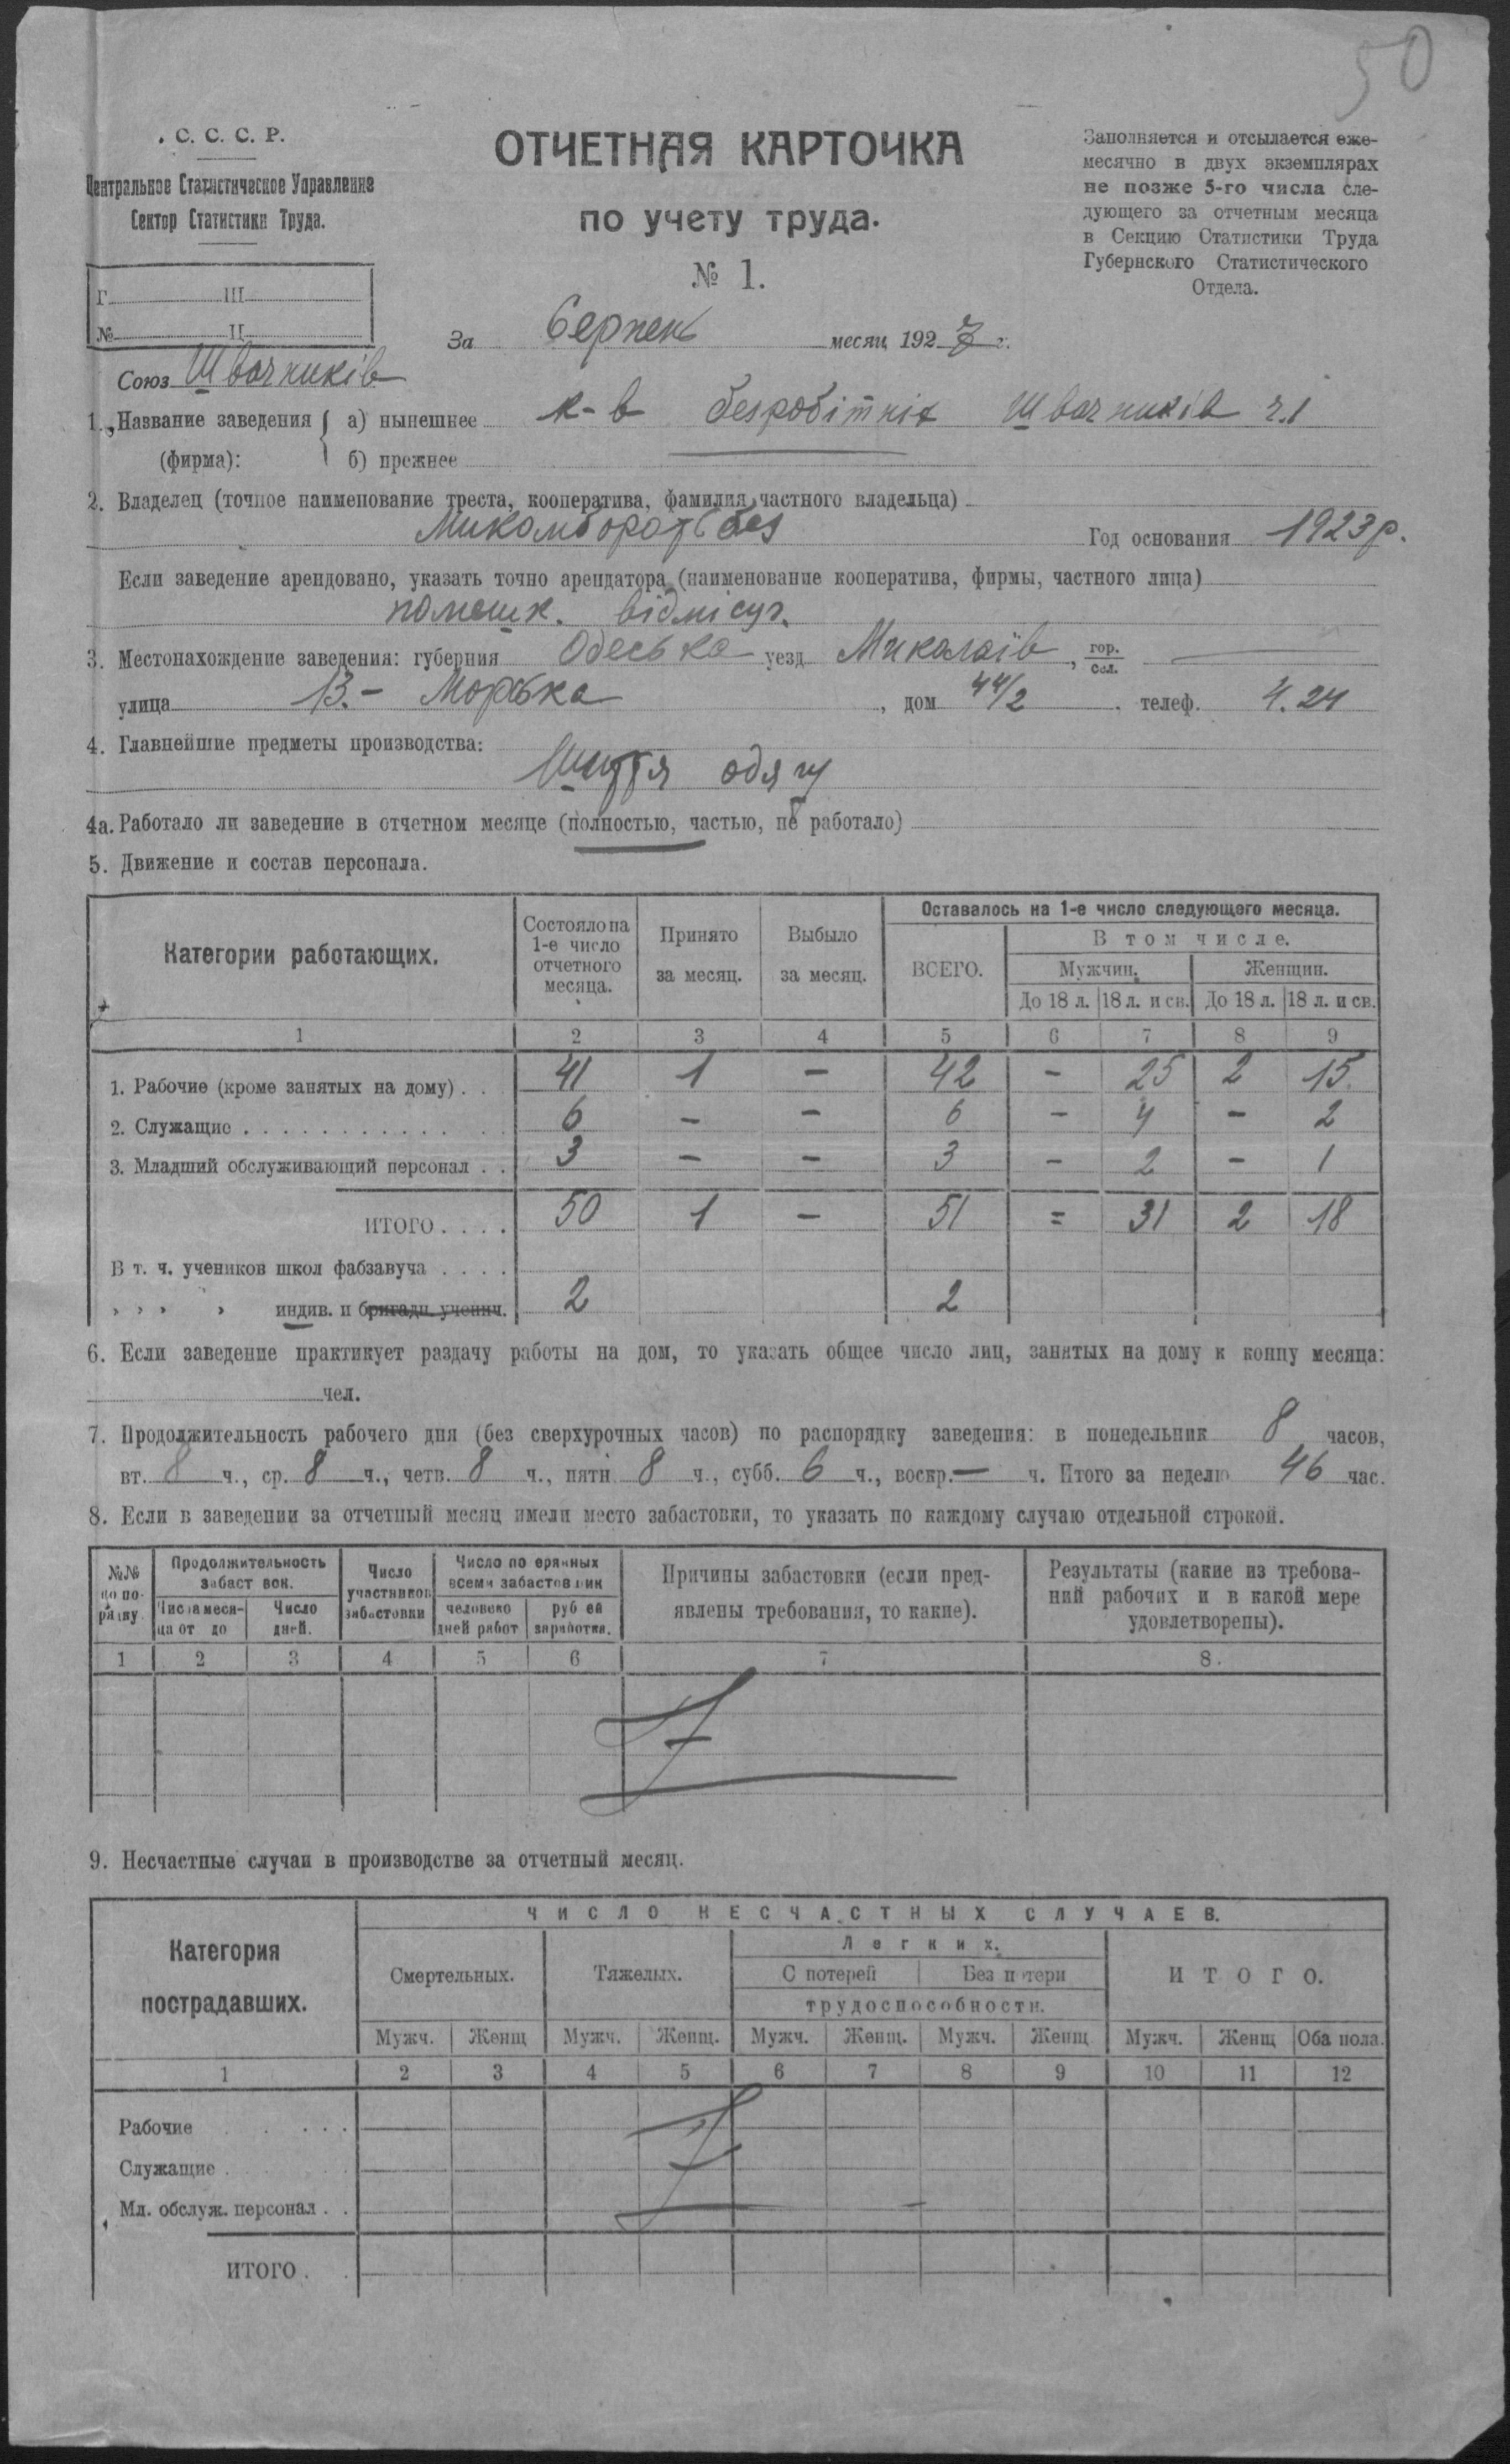 50
С. С. С. Р.
Центральное Статистическое Управление
Сектор Статистики Труда.
ОТЧЕТНАЯ КАРТОЧКА
по учету труда.
№ 1.
Заполняется и отсылается еже-
месячно в двух экземплярах
не позже 5-го числа сле-
дующего за отчетным месяца
в Секцию Статистики Труда
Губернского Статистического
Отдела.
Г. III
№ II
За Серпень месяц 1927 г.
Союз Швачників
1. Название заведения (фирма): а) нынешнее к-в безробітніх Швачників ч.1
б) прежнее
2. Владелец (точное наименование треста, кооператива, фамилия частного владельца)
Год основания 1923 р.
Если заведение арендовано, указать точно арендатора (наименование кооператива, фирмы, частного лица)
помешк. відмісцг.
3. Местонахождение заведения: губерния Одеська уезд Миколаїв, гор. сел. —
улица 13.- Морська, дом 44/2, телеф. 4.24
4. Главнейшие предметы производства:
Шиття одягу
4а. Работало ли заведение в отчетном месяце (полностью, частью, не работало)
5. Движение и состав персонала.
Категории работающих. Состояло на 1-е число отчетного месяца. Принято за месяц. Выбыло за месяц. Оставалось на 1-е число следующего месяца.
ВСЕГО. В том числе.
Мужчин. Женщин.
До 18 л. 18 л. и св. До 18 л. 18 л. и св.
1 2 3 4 5 6 7 8 9
1. Рабочие (кроме занятых на дому) . . 41 1 – 42 – 25 2 15
2. Служащие . . . . 6 – – 6 – 4 – 2
3. Младший обслуживающий персонал . . 3 – – 3 – 2 – 1
ИТОГО . . . . 50 1 – 51 = 31 2 18
В т. ч. учеников школ фабзавуча . . . .
» » » » индив. и бригадн. ученич. 2 2
6. Если заведение практикует раздачу работы на дом, то указать общее число лиц, занятых на дому к концу месяца:
чел.
7. Продолжительность рабочего дня (без сверхурочных часов) по распорядку заведения: в понедельник 8 часов,
вт. 8 ч., ср. 8 ч., четв. 8 ч., пятн. 8 ч., субб. 6 ч., воскр. — ч. Итого за неделю 46 час.
8. Если в заведении за отчетный месяц имели место забастовки, то указать по каждому случаю отдельной строкой.
№№ по по-рядку. Продолжительность забастовок. Число участников забастовки Число потерянных всеми забастовками Причины забастовки (если пред-явлены требования, то какие). Результаты (какие из требова-ний рабочих и в какой мере удовлетворены).
Числа меся-ца от до Число дней. человеко дней работ рублей заработка.
1 2 3 4 5 6 7 8.
9. Несчастные случаи в производстве за отчетный месяц.
Категория пострадавших. ЧИСЛО НЕСЧАСТНЫХ СЛУЧАЕВ.
Смертельных. Тяжелых. Легких. ИТОГО.
С потерей Без потери
трудоспособности.
Мужч. Женщ Мужч. Женщ. Мужч. Женщ. Мужч. Женщ Мужч. Женщ Оба пола.
1 2 3 4 5 6 7 8 9 10 11 12
Рабочие . . . .
Служащие .
Мл. обслуж. персонал . .
ИТОГО .